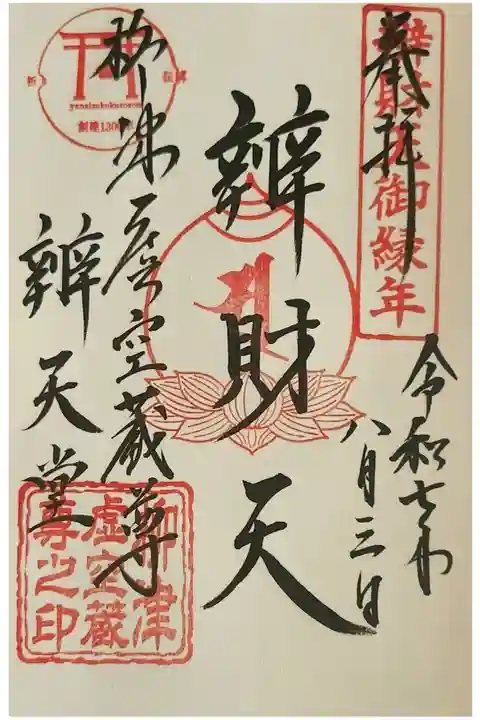 奉拝
辯財天御縁年
令和七年
八月三日
辯財天
柳津虚空蔵尊
辯天堂
yanaizukokuzoson
創建1300年
柳津
虚空蔵
尊之印